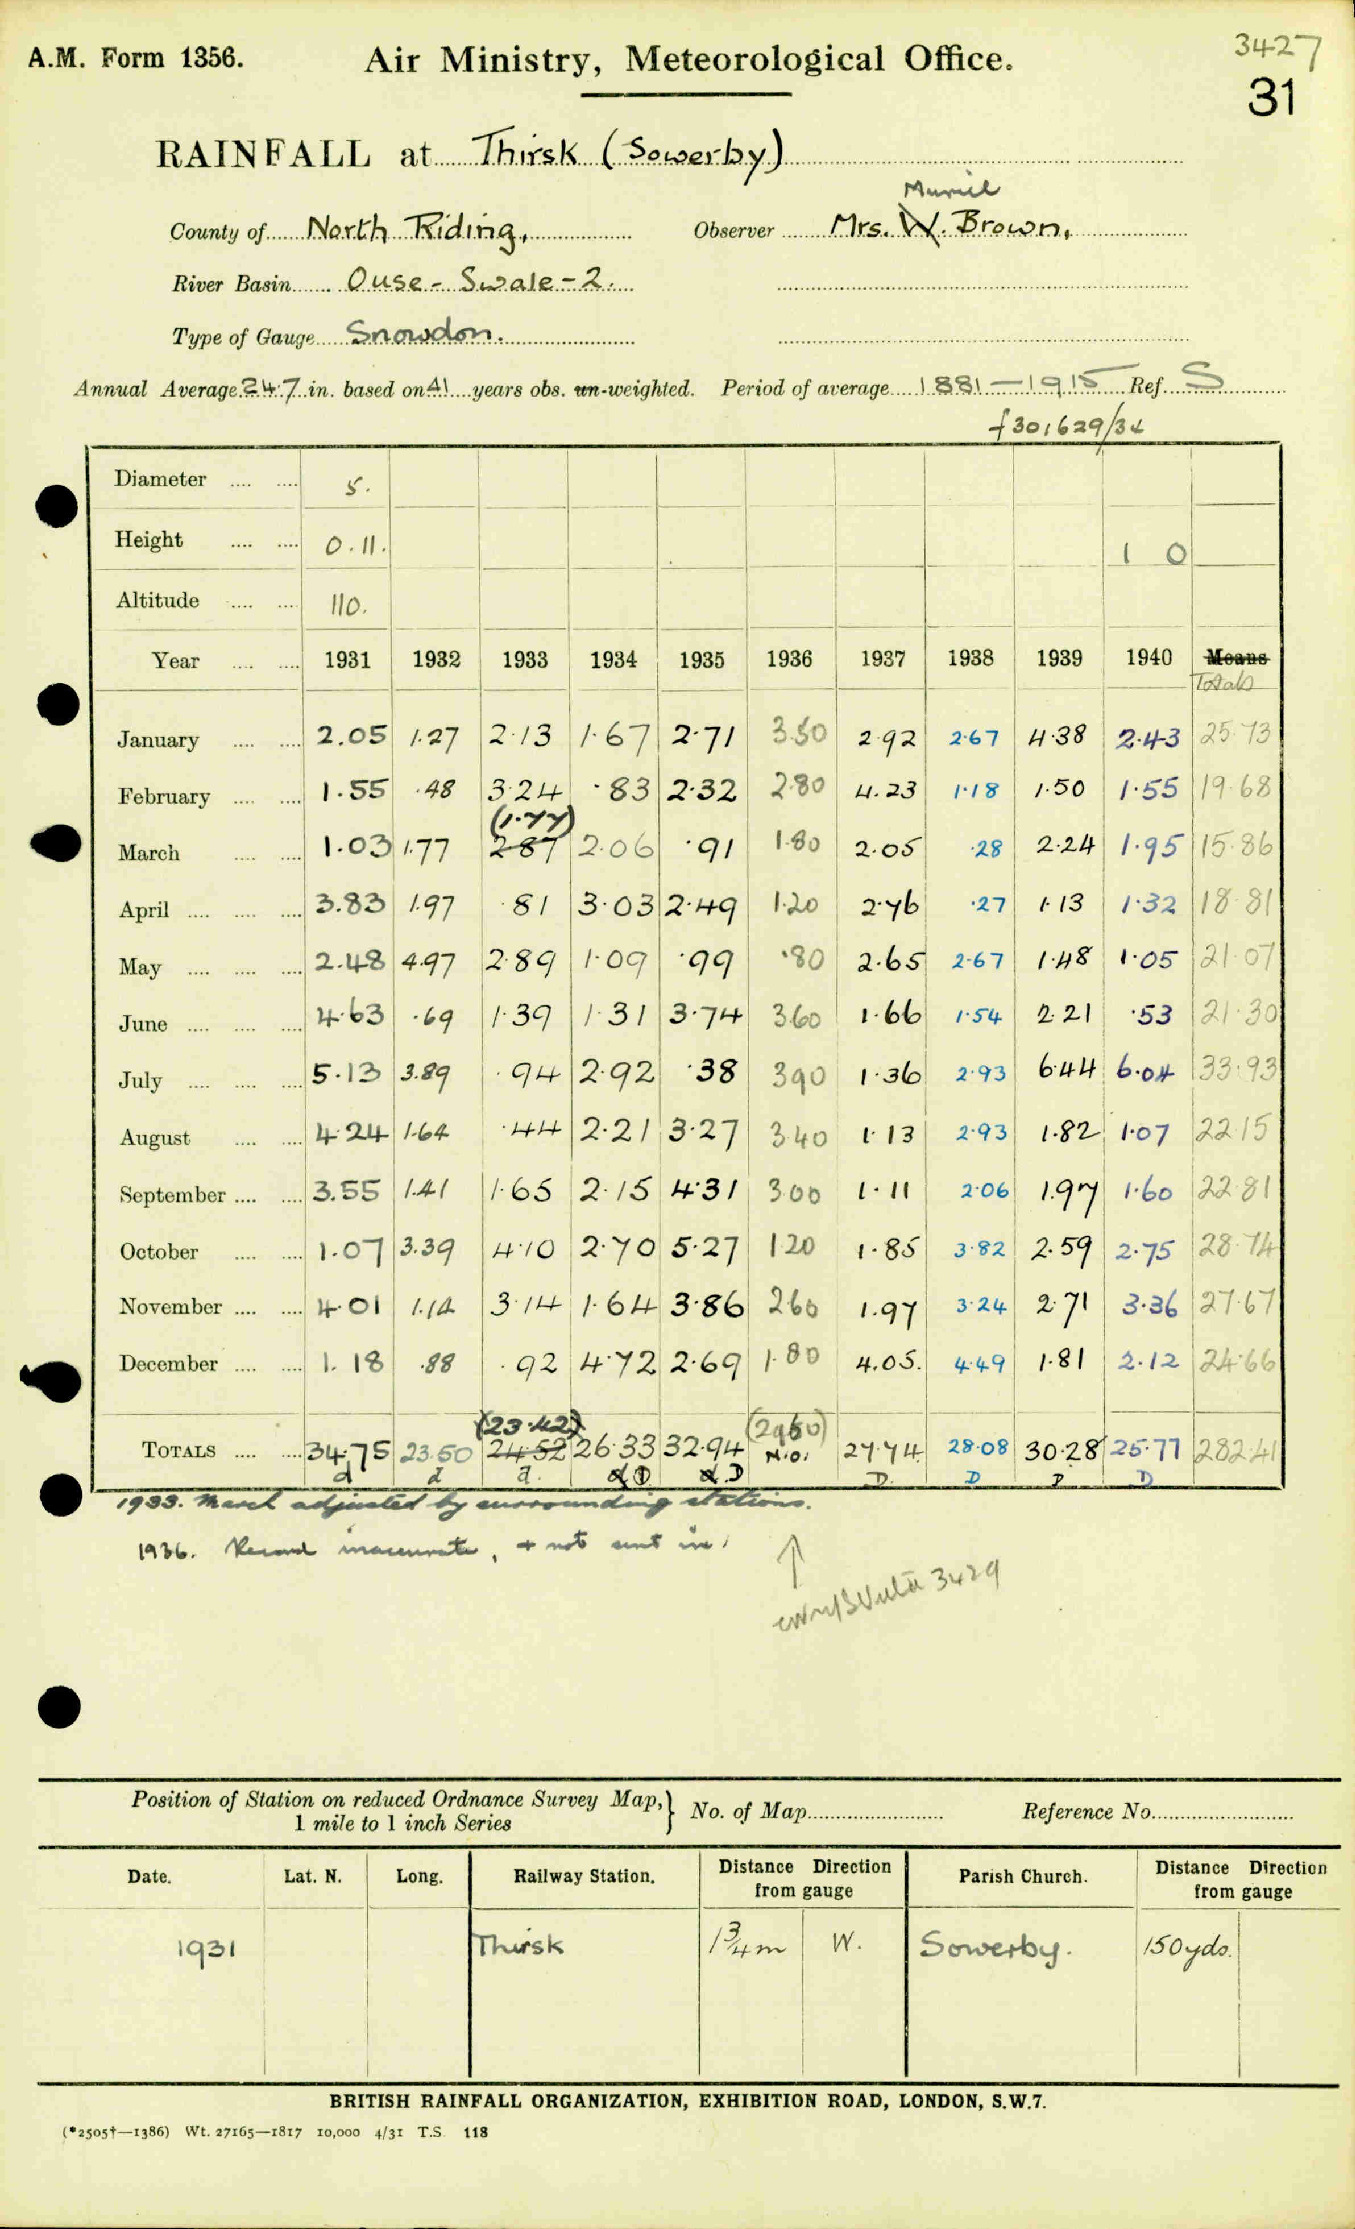 3427
A.M. Form 1356. Air Ministry, Meteorological Office.
31
RAINFALL at Thirsk (Sowerby)
Muriel
County of North Riding, Observer Mrs. W. Brown,
River Basin Ouse - Swale - 2.
Type of Gauge Snowdon.
Annual Average 24.7 in. based on 41 years obs. un-weighted. Period of average 1881-1915 Ref. S
f 301629/34
Diameter .... .... 5.
Height .... .... 0.11. 1 0
Altitude .... .... 110.
Year .... .... 1931 1932 1933 1934 1935 1936 1937 1938 1939 1940 Means
Totals
January .... .... 2.05 1.27 2.13 1.67 2.71 3.50 2.92 2.67 4.38 2.43 25.73
February .... .... 1.55 .48 3.24 .83 2.32 2.80 4.23 1.18 1.50 1.55 19.68
(1.77)
March .... .... 1.03 1.77 2.87 2.06 .91 1.80 2.05 .28 2.24 1.95 15.86
April .... .... .... 3.83 1.97 .81 3.03 2.49 1.20 2.76 .27 1.13 1.32 18.81
May .... .... .... 2.48 4.97 2.89 1.09 .99 .80 2.65 2.67 1.48 1.05 21.07
June .... .... .... 4.63 .69 1.39 1.31 3.74 3.60 1.66 1.54 2.21 .53 21.30
July .... .... .... 5.13 3.89 .94 2.92 .38 3.90 1.36 2.93 6.44 6.04 33.93
August .... .... 4.24 1.64 .44 2.21 3.27 3.40 1.13 2.93 1.82 1.07 22.15
September .... .... 3.55 1.41 1.65 2.15 4.31 3.00 1.11 2.06 1.97 1.60 22.81
October .... .... 1.07 3.39 4.10 2.70 5.27 1.20 1.85 3.82 2.59 2.75 28.74
November .... .... 4.01 1.14 3.14 1.64 3.86 2.60 1.97 3.24 2.71 3.36 27.67
December .... .... 1.18 .88 .92 4.72 2.69 1.80 4.05. 4.49 1.81 2.12 24.66
(23.42) (29.60)
TOTALS .... .... 34.75 23.50 24.52 26.33 32.94 N.O. 27.74 28.08 30.28 25.77 282.41
d d d. d D d D D. D D D
1933. March adjusted by surrounding stations.
1936. Record inaccurate, + not sent in.
3429
Position of Station on reduced Ordnance Survey Map, } No. of Map Reference No.
1 mile to 1 inch Series
Date. Lat. N. Long. Railway Station. Distance Direction from gauge Parish Church. Distance Direction from gauge
1931 Thirsk 1¾ m W. Sowerby. 150 yds.
BRITISH RAINFALL ORGANIZATION, EXHIBITION ROAD, LONDON, S.W.7.
(*2505†—1386) Wt. 27165—1817 10,000 4/31 T.S. 118